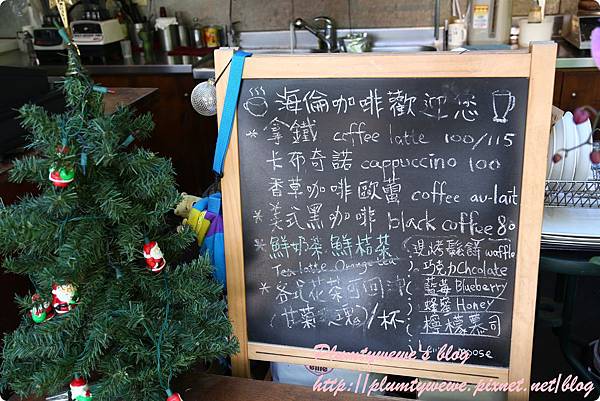 海倫咖啡歡迎您
*拿鐵 coffee latte 100/115
卡布奇諾 cappuccino 100
香草咖啡歐蕾 coffee au-lait
*美式黑咖啡 black coffee 80
*鮮奶茶 鮮桔茶
Tea latte Orange tea
*各式花茶可回沖
(甘菊、玫瑰)/杯
現烤鬆餅 waffle
巧克力 Chcolate
藍莓 Blueberry
蜂蜜 Honey
檸檬慕司
Plumtywewe's blog
http://plumtywewe.pixnet.net/blog